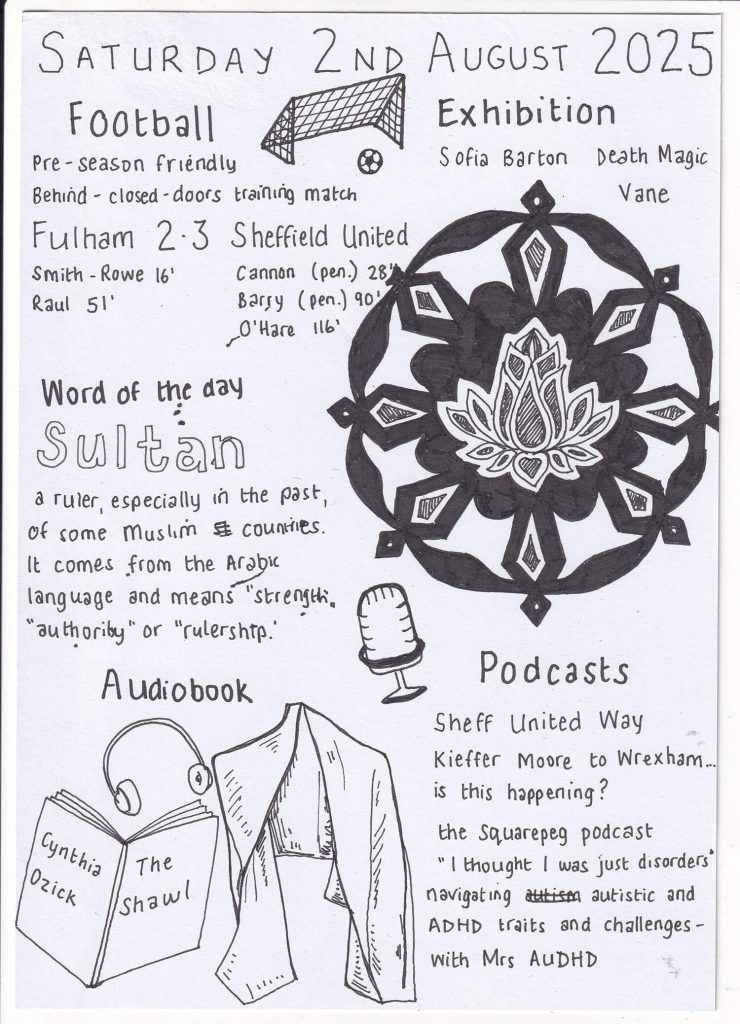 SATURDAY 2ND AUGUST 2025
Football
Pre-season friendly
Behind-closed-doors training match
Fulham 2·3 Sheffield United
Smith-Rowe 16'
Raul 51'
Cannon (pen.) 28'
Barry (pen.) 90'
O'Hare 116'
Exhibition
Sofia Barton Death Magic
Vane
Word of the day
Sultan
a ruler, especially in the past,
of some Muslim countries.
It comes from the Arabic
language and means "strength,
"authority" or "rulership."
Audiobook
Cynthia
Ozick
The
Shawl
Podcasts
Sheff United Way
Kieffer Moore to Wrexham...
is this happening?
the Squarepeg podcast
"I thought I was just disorders"
navigating autism autistic and
ADHD traits and challenges-
with Mrs AUDHD